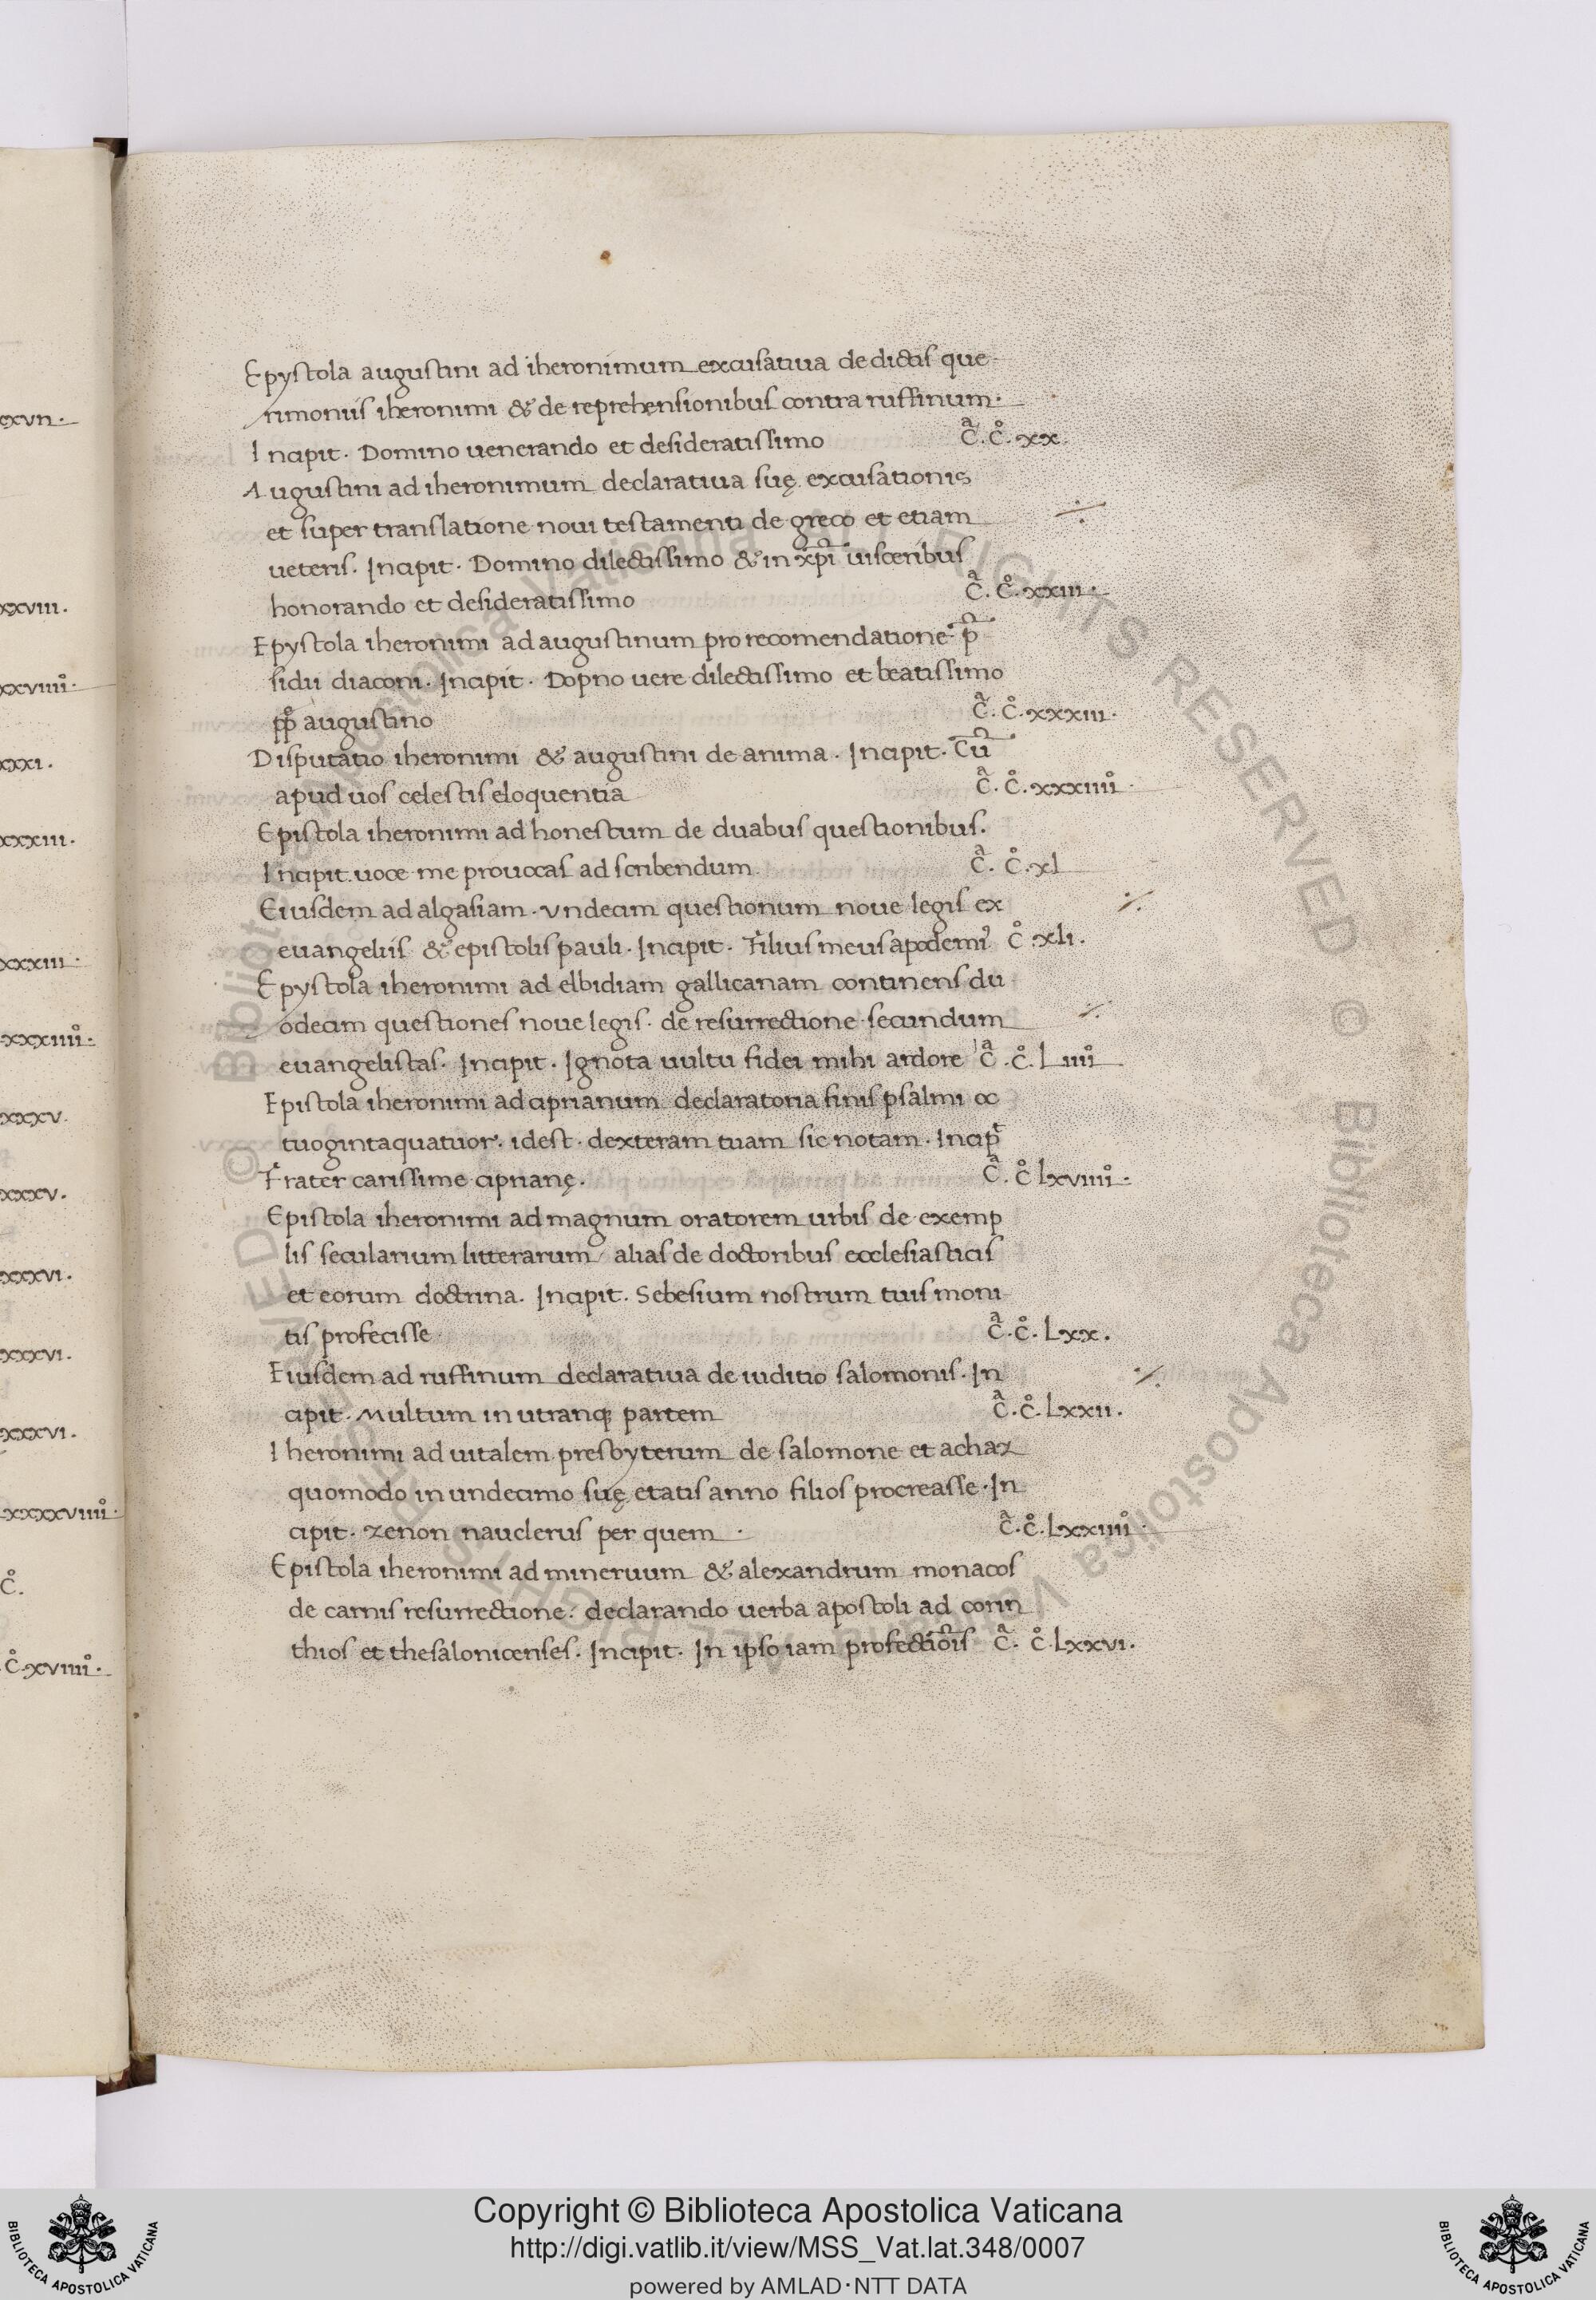 Epystola augustini ad iheronimum excusatiua de dictis que
rimoniis iheronimi & de reprehensionibus contra ruffinum.
Incipit. Domino uenerando et desideratissimo c̄ᵃ. c̊. xx.
Augustini ad iheronimum declaratiua suę excusationis
et super translatione noui testamenti de greco et etiam
ueteris. Incipit. Domino dilectissimo & in xp̄i uisceribus
honorando et desideratissimo c̄ᵃ. c̊. xxiii.
Epystola iheronimi ad augustinum pro recomendatione p̄
sidii diaconi. Incipit. Dopno uere dilectissimo et beatissimo
pp̊ augustino c̄ᵃ. c̊. xxxiii.
Disputatio iheronimi & augustini de anima. Incipit. Cū
apud uos celestis eloquentia c̄ᵃ. c̊. xxxiiii̊.
Epistola iheronimi ad honestum de duabus questionibus.
Incipit. uoce me prouocas ad scribendum c̄ᵃ. c̊. xl
Eiusdem ad algasiam. vndecim questionum noue legis ex
euangeliis & epistolis pauli. Incipit. Filius meus apodemiꝰ c̊. xli.
Epystola iheronimi ad elbidiam gallicanam continens du
odecim questiones noue legis. de resurrectione secundum
euangelistas. Incipit. Ignota uultu fidei mihi ardore c̄ᵃ. c̊. Liiii̊
Epistola iheronimi ad ciprianum declaratoria finis psalmi oc
tuogintaquatuor. idest. dexteram tuam sic notam. Incip̄
Frater carissime ciprianę. c̄ᵃ. c̊ lxviiii̊.
Epistola iheronimi ad magnum oratorem urbis de exemp
lis secularium litterarum / alias de doctoribus ecclesiasticis
et eorum doctrina. Incipit. Sebesium nostrum tuis moni
tis profecisse c̄ᵃ. c̊. Lxx.
Eiusdem ad ruffinum declaratiua de iuditio salomonis. In
cipit. Multum in utranq; partem c̄ᵃ. c̊. Lxxii.
Iheronimi ad uitalem presbyterum de salomone et achaz
quomodo in undecimo suę etatis anno filios procreasse. In
cipit. zenon nauclerus per quem. c̄ᵃ. c̊. Lxxiiii̊.
Epistola iheronimi ad mineruum & alexandrum monacos
de carnis resurrectione: declarando uerba apostoli ad corin
thios et thesalonicenses. Incipit. In ipso iam profectiōis c̄ᵃ. c̊. Lxxvi.
xxviii.
xxviiii̊.
xxxi.
xxxiii.
xxxiii.
xxxiiii̊.
xxxv.
xxxv.
xxxvi.
xxxvi.
xxxvi.
xxxxviiii̊.
c̊.
c̊. xviiii̊.
© Biblioteca Apostolica Vaticana ALL RIGHTS RESERVED
© Biblioteca Apostolica Vaticana ALL RIGHTS RESERVED
Copyright © Biblioteca Apostolica Vaticana
http://digi.vatlib.it/view/MSS_Vat.lat.348/0007
powered by AMLAD·NTT DATA
BIBLIOTECA APOSTOLICA VATICANA
BIBLIOTECA APOSTOLICA VATICANA